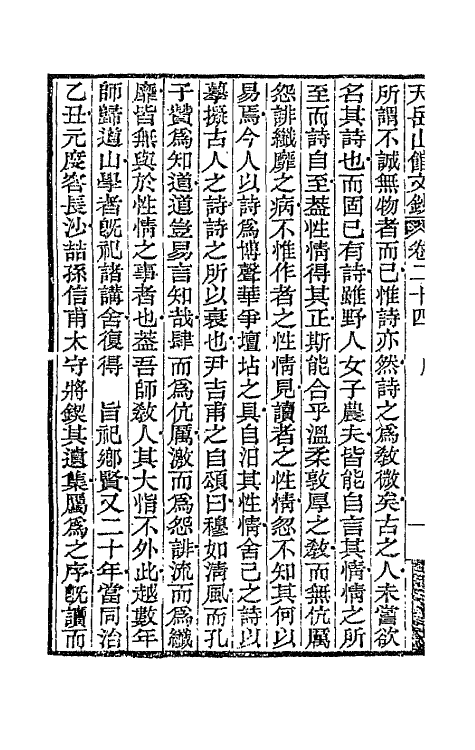 天岳山館文鈔 卷二十四 序 一
所謂不誠無物者而已惟詩亦然詩之爲敎微矣古之人未嘗欲
名其詩也而固已有詩雖野人女子農夫皆能自言其情情之所
至而詩自至蓋性情得其正斯能合乎溫柔敦厚之敎而無伉厲
怨誹纖靡之病不惟作者之性情見讀者之性情忽不知其何以
易焉今人以詩爲博聲華爭壇坫之具自汨其性情舍己之詩以
摹擬古人之詩詩之所以衰也尹吉甫之自頌曰穆如淸風而孔
子贊爲知道道豈易言知哉肆而爲伉厲激而爲怨誹流而爲纖
靡皆無與於性情之事者也蓋吾師敎人其大恉不外此越數年
師歸道山學者旣祀諸講舍復得 旨祀鄉賢又二十年當同治
乙丑元度客長沙喆孫信甫太守將鋟其遺集屬爲之序旣讀而